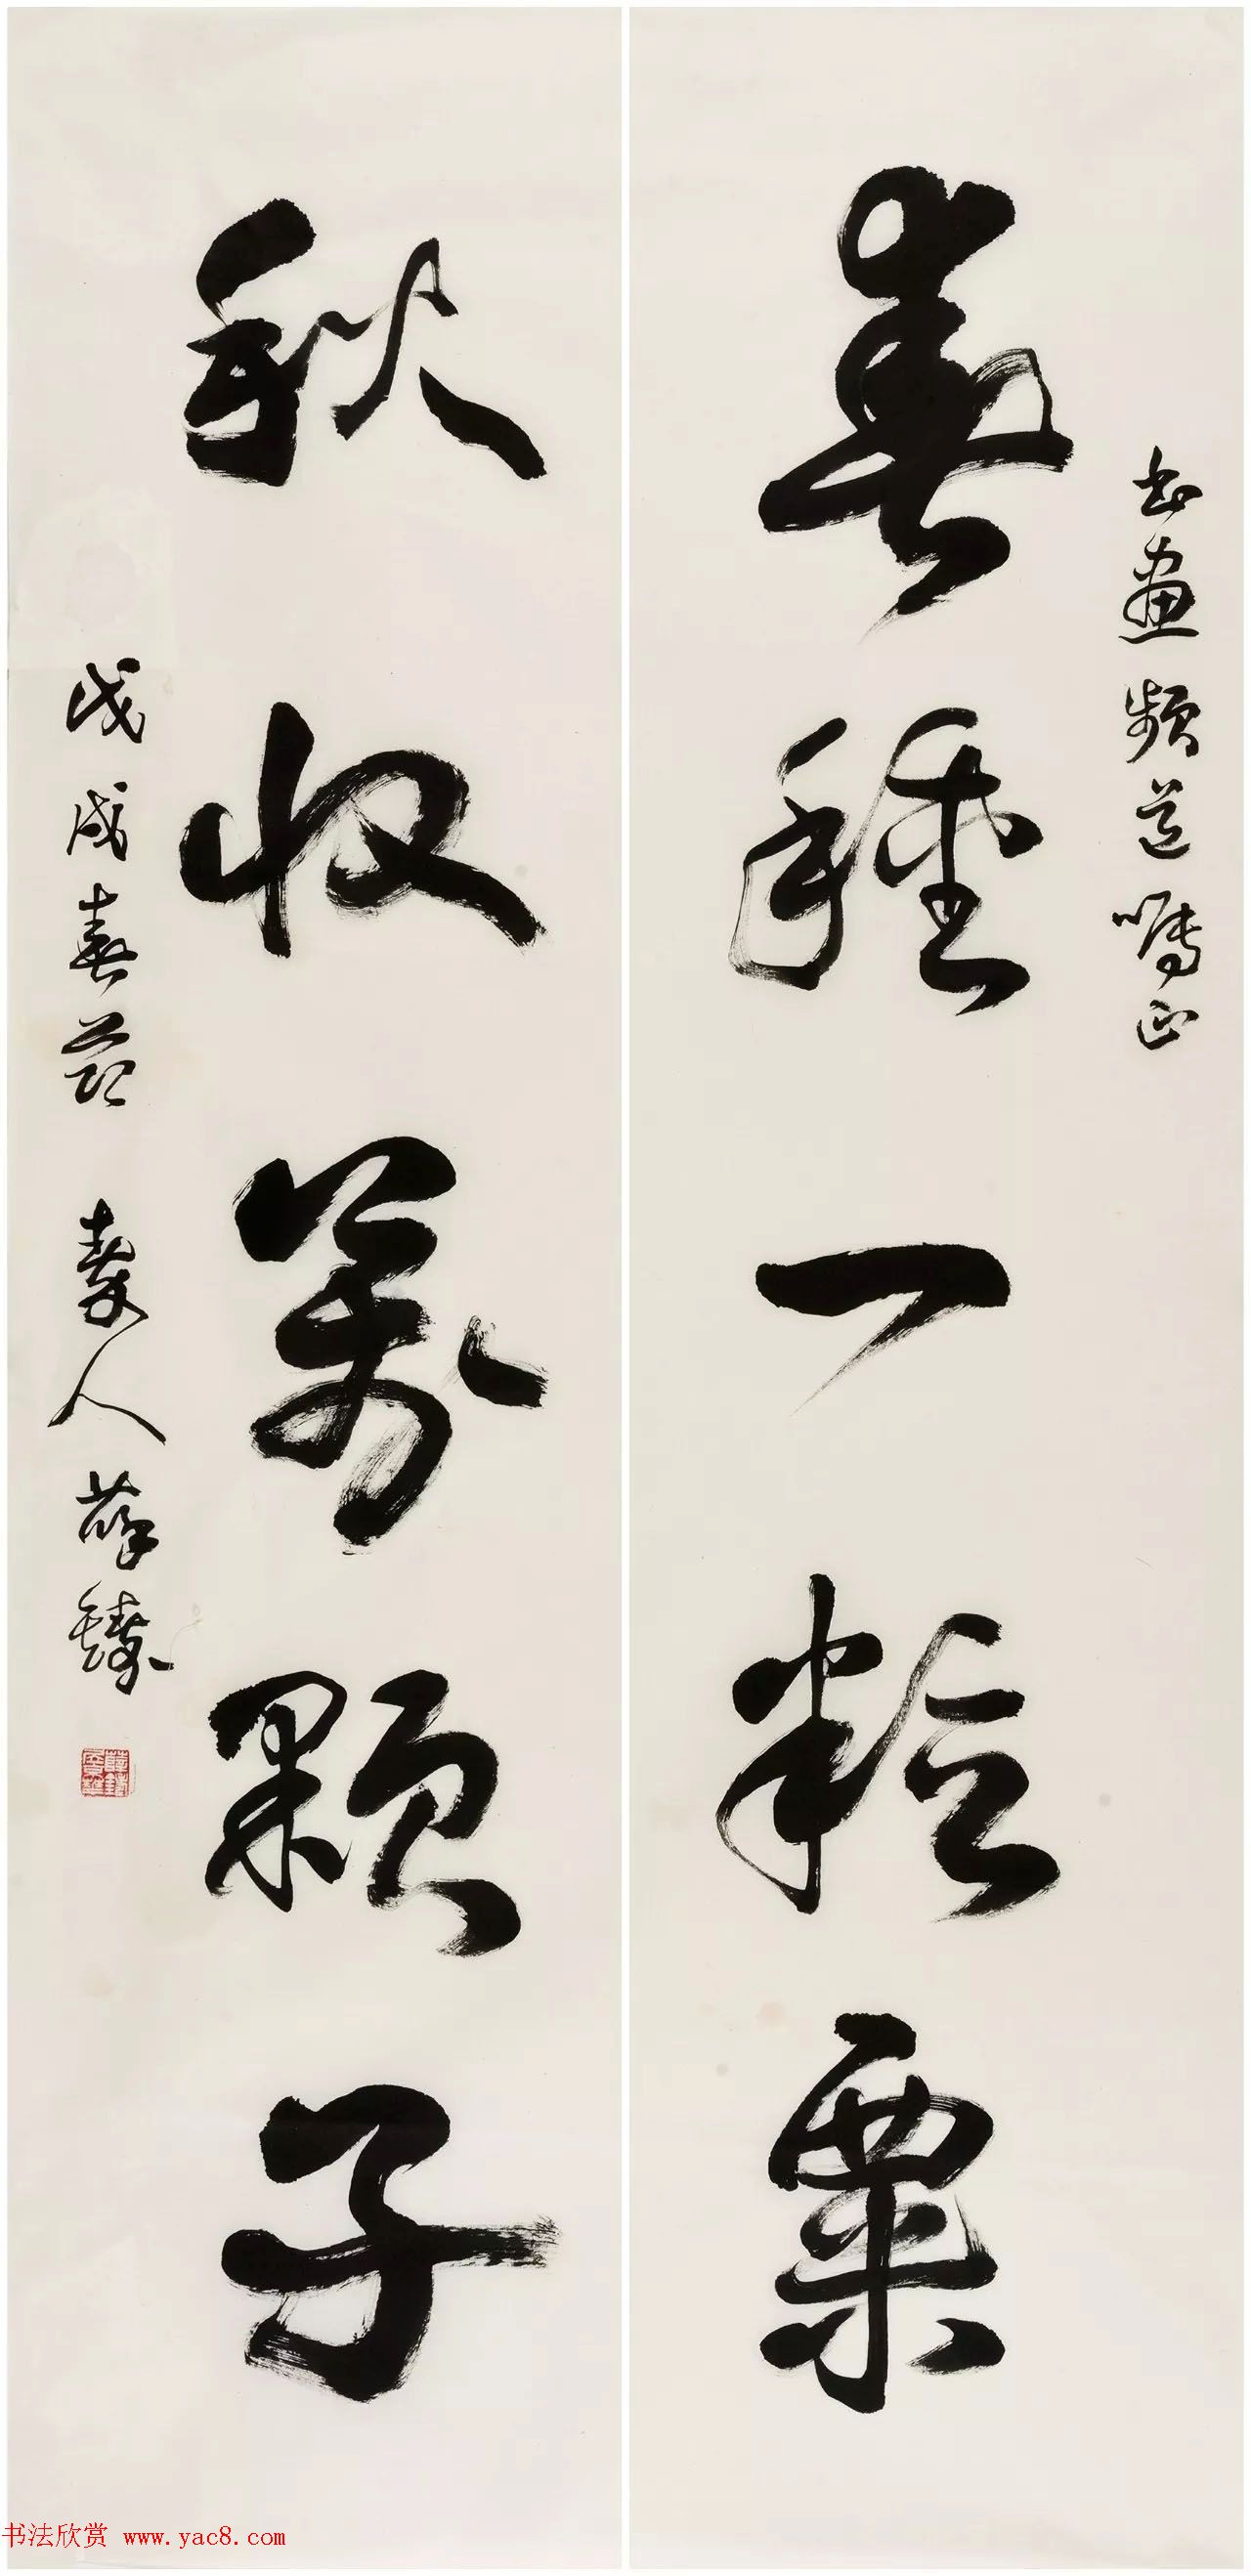 书画频道嘱正
春種一粒粟
秋收萬顆子
戊戌春節 秦人薛鑄
书法欣赏 www.yac8.com